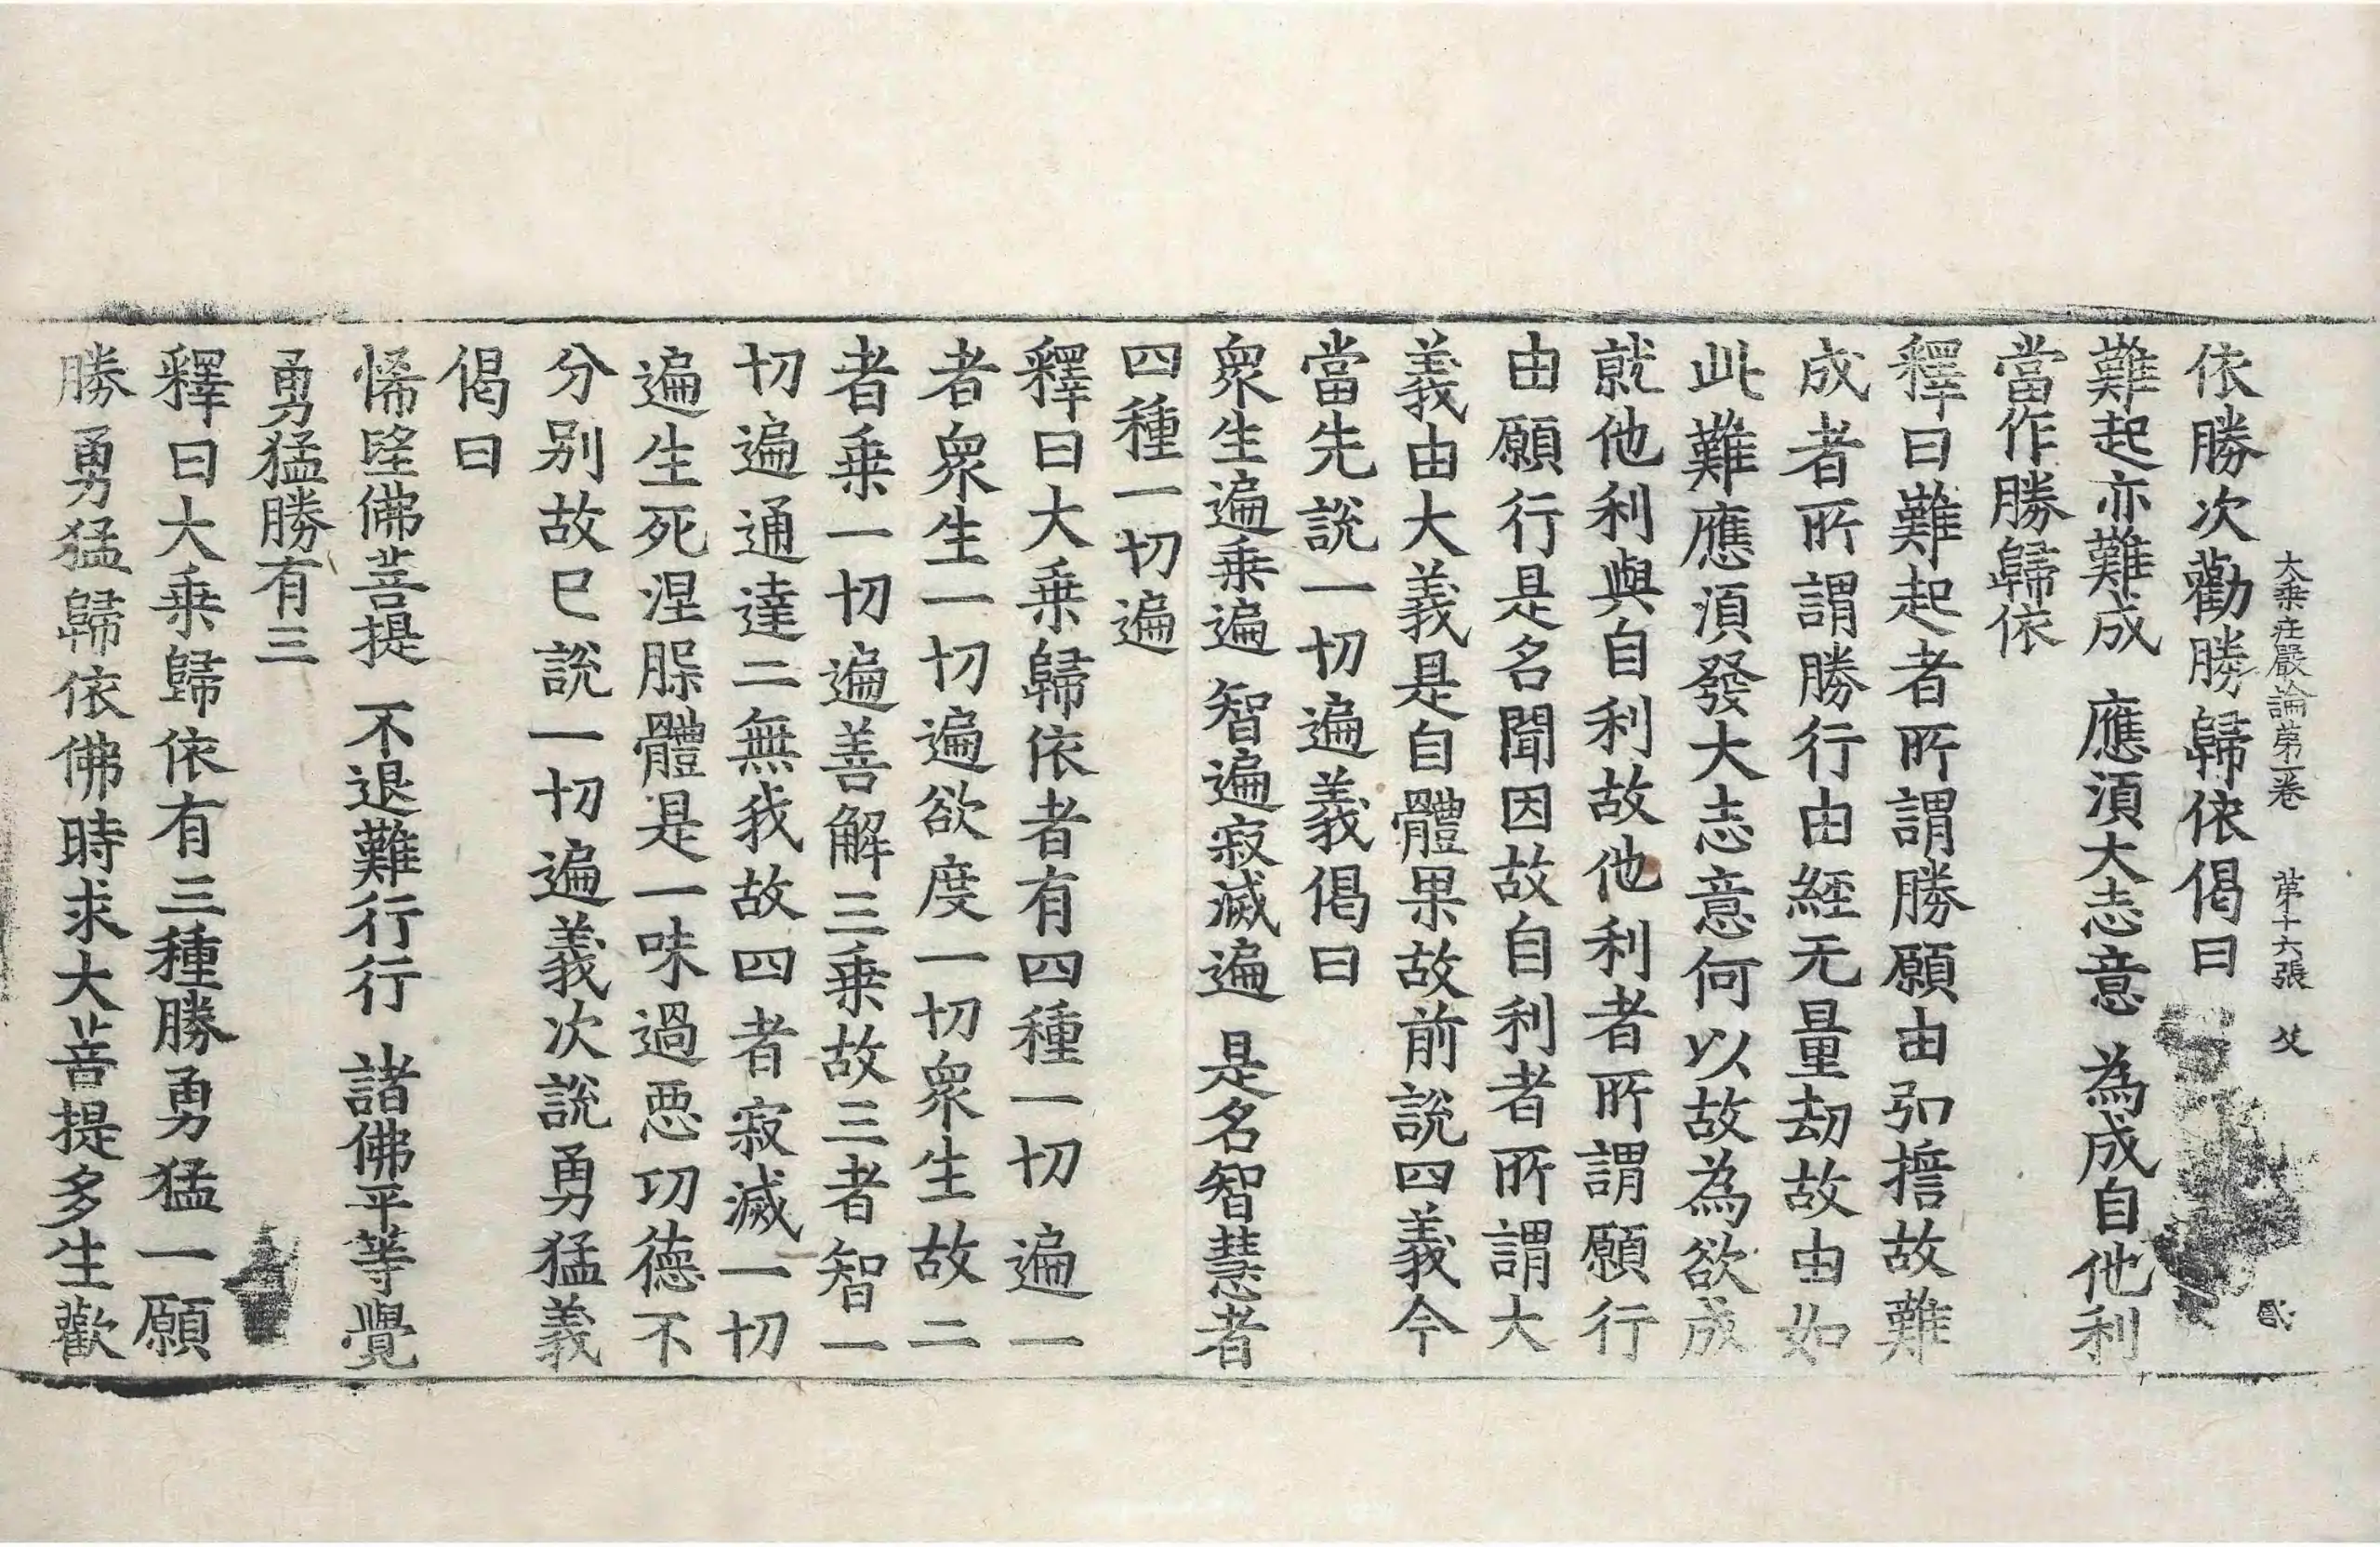 大乘莊嚴論第一卷 第十六張 父
依勝次勸勝歸依偈曰
難起亦難成 應湏大志意 為成自他利
當作勝歸依
釋曰難起者所謂勝願由弘擔故難
成者所謂勝行由經无量劫故由如
此難應湏發大志意何以故為欲成
就他利與自利故他利者所謂願行
由願行是名聞因故自利者所謂大
義由大義是自體果故前說四義今
當先說一切遍義偈曰
衆生遍乗遍 智遍寂滅遍 是名智慧者
四種一切遍
釋曰大乗歸依者有四種一切遍一
者衆生一切遍欲度一切衆生故二
者乗一切遍善解三乗故三者智一
切遍通達二無我故四者寂滅一切
遍生死涅槃體是一味過惡功德不
分别故已說一切遍義次說勇猛義
偈曰
悕望佛菩提 不退難行行 諸佛平等覺
勇猛勝有三
釋曰大乗歸依有三種勝勇猛一願
勝勇猛歸依佛時求大菩提多生歡